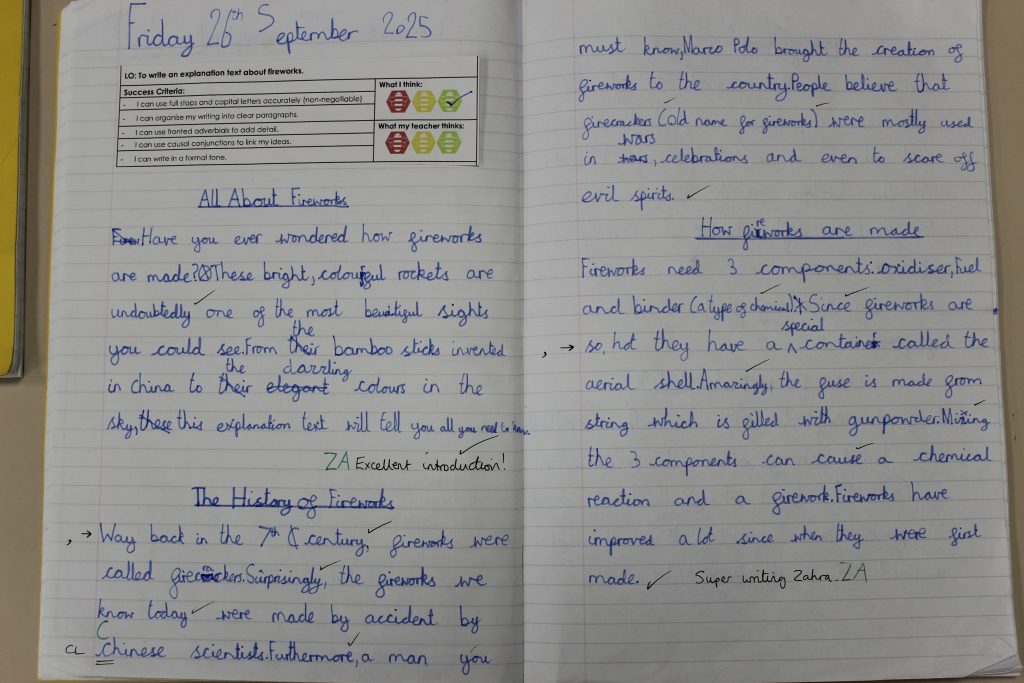 Friday 26th September 2025
LO: To write an explanation text about fireworks.
Success Criteria:
- I can use full stops and capital letters accurately (non-negotiable)
- I can organise my writing into clear paragraphs.
- I can use fronted adverbials to add detail.
- I can use causal conjunctions to link my ideas.
- I can write in a formal tone.
What I think:
What my teacher thinks:
All About Fireworks
Have you ever wondered how fireworks
are made? These bright, colourful rockets are
undoubtedly one of the most beautiful sights
the
you could see. From their bamboo sticks invented
the dazzling
in china to their elegant colours in the
sky, these this explanation text will tell you all you need to know.
ZA Excellent introduction!
The History of Fireworks
, → Way back in the 7th century, fireworks were
called firecrackers. Surprisingly, the fireworks we
know today were made by accident by
C
CL chinese scientists. Furthermore, a man you
must know, Marco Polo brought the creation of
fireworks to the country. People believe that
firecrackers (old name for fireworks) were mostly used
wars
in , celebrations and even to scare off
evil spirits.
How fireworks are made
Fireworks need 3 components: oxidiser, Fuel
and binder (a type of chemical).* Since fireworks are
special
, → so, hot they have a ^ container called the
aerial shell. Amazingly, the fuse is made from
string which is filled with gunpowder. Mixing
the 3 components can cause a chemical
reaction and a firework. Fireworks have
improved a lot since when they were first
made.
Super writing Zahra. ZA